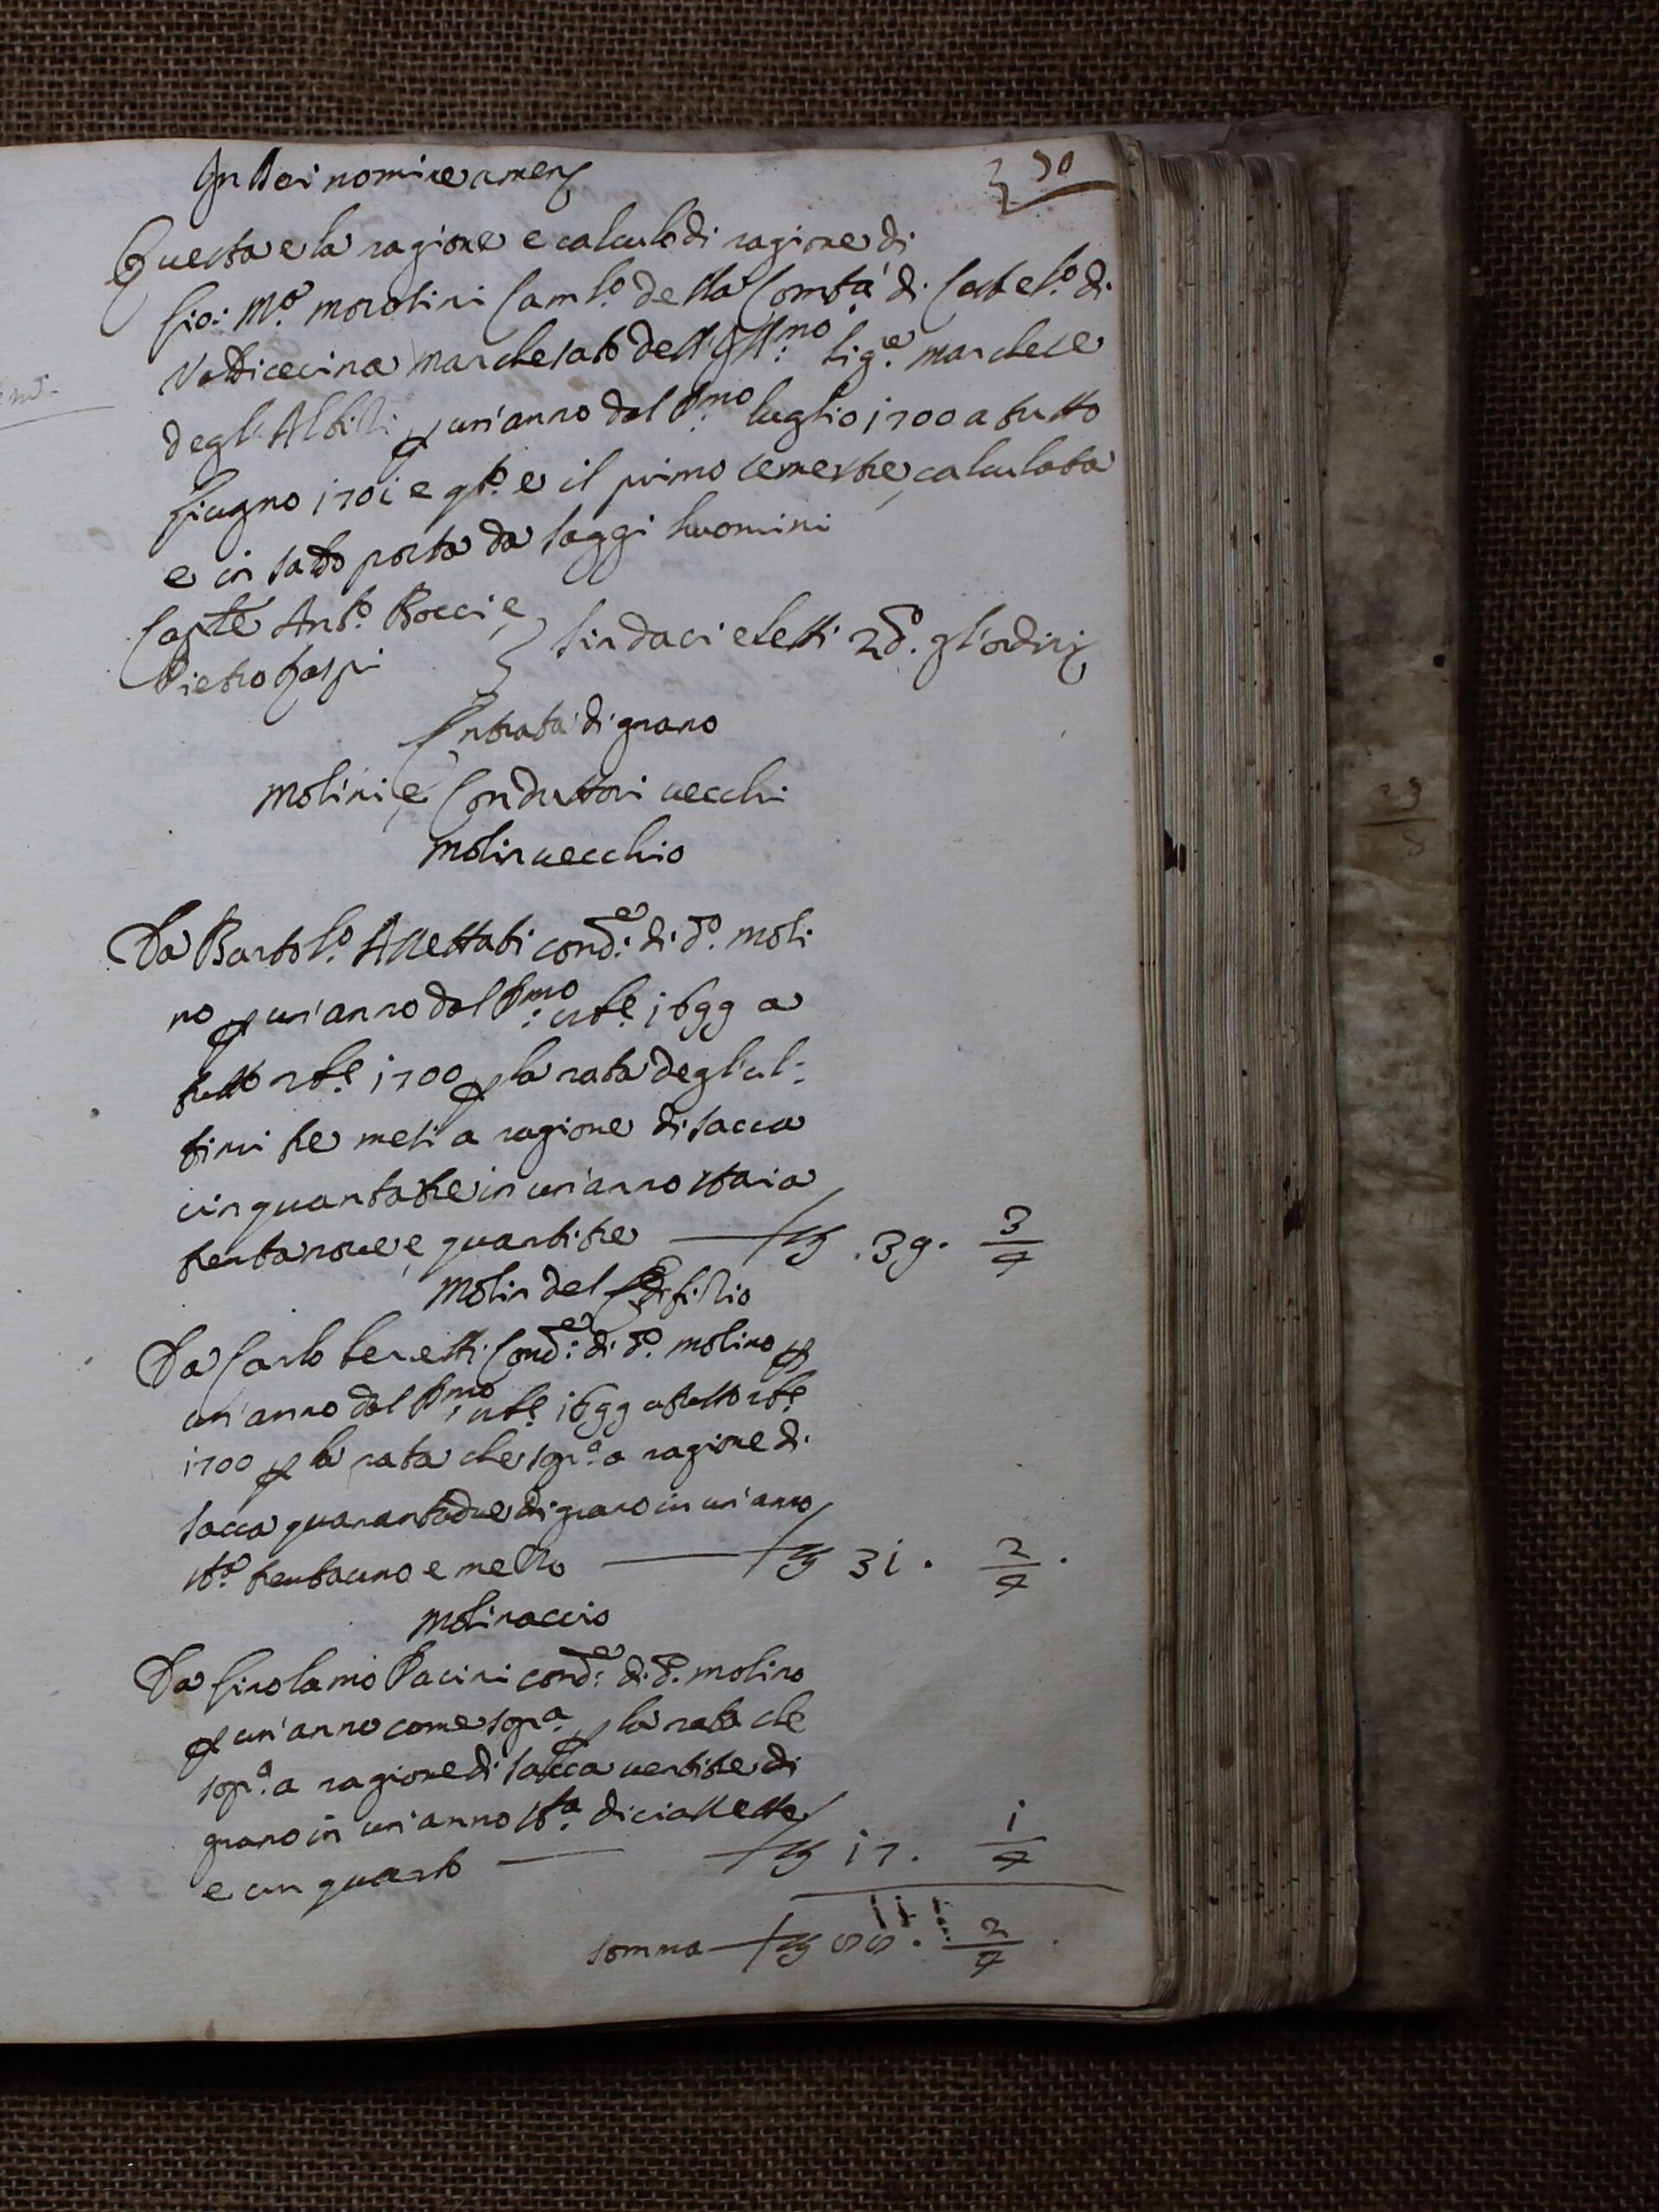 In Dei nomine amen
30
Questa e la ragione e calculo di ragione di
Gio: Mo. Morolini Camlo. della Comtà di Castelo. di
Val di Cecina Marchesato dell Illmo: Sige. Marchese
degli Albizi p un'anno dal Pmo: luglio 1700 a tutto
Giugno 1701 e qto. e il primo semestre, calculata
e in saldo posta da saggi huomini
Capte Anto. Bocci e
Pietro Gaspi
Sindaci eletti 2do. gl'ordini
Entrata di grano
Molini, e Conduttori vecchi
Molin vecchio
Da Bartolo. condre: di do. moli
no p un'anno dal Pmo: 1699 a
tutto 1700 p la rata degl'ul:
timi tre mesi a ragione di sacca
cinquantatre in un'anno staia
trentanove, e quarti tre — 39. 3/4
Molin del Edifizio
Da Carlo Ceretti Condre: di do. molino p
un'anno dal Pmo: 1699 a tutto
1700 p la rata che sopra. a ragione di
sacca quarantadue di grano in un'anno
sta. trentauno e mezzo — 31. 2/4.
Molinaccio
Da Girolamo Pacini condre: di do. molino
p un'anno come sopra. p la rata che
sopra. a ragione di sacca ventitre di
grano in un'anno sta. diciassette
e un quarto — 17. 1/4
somma — 88. 2/4.